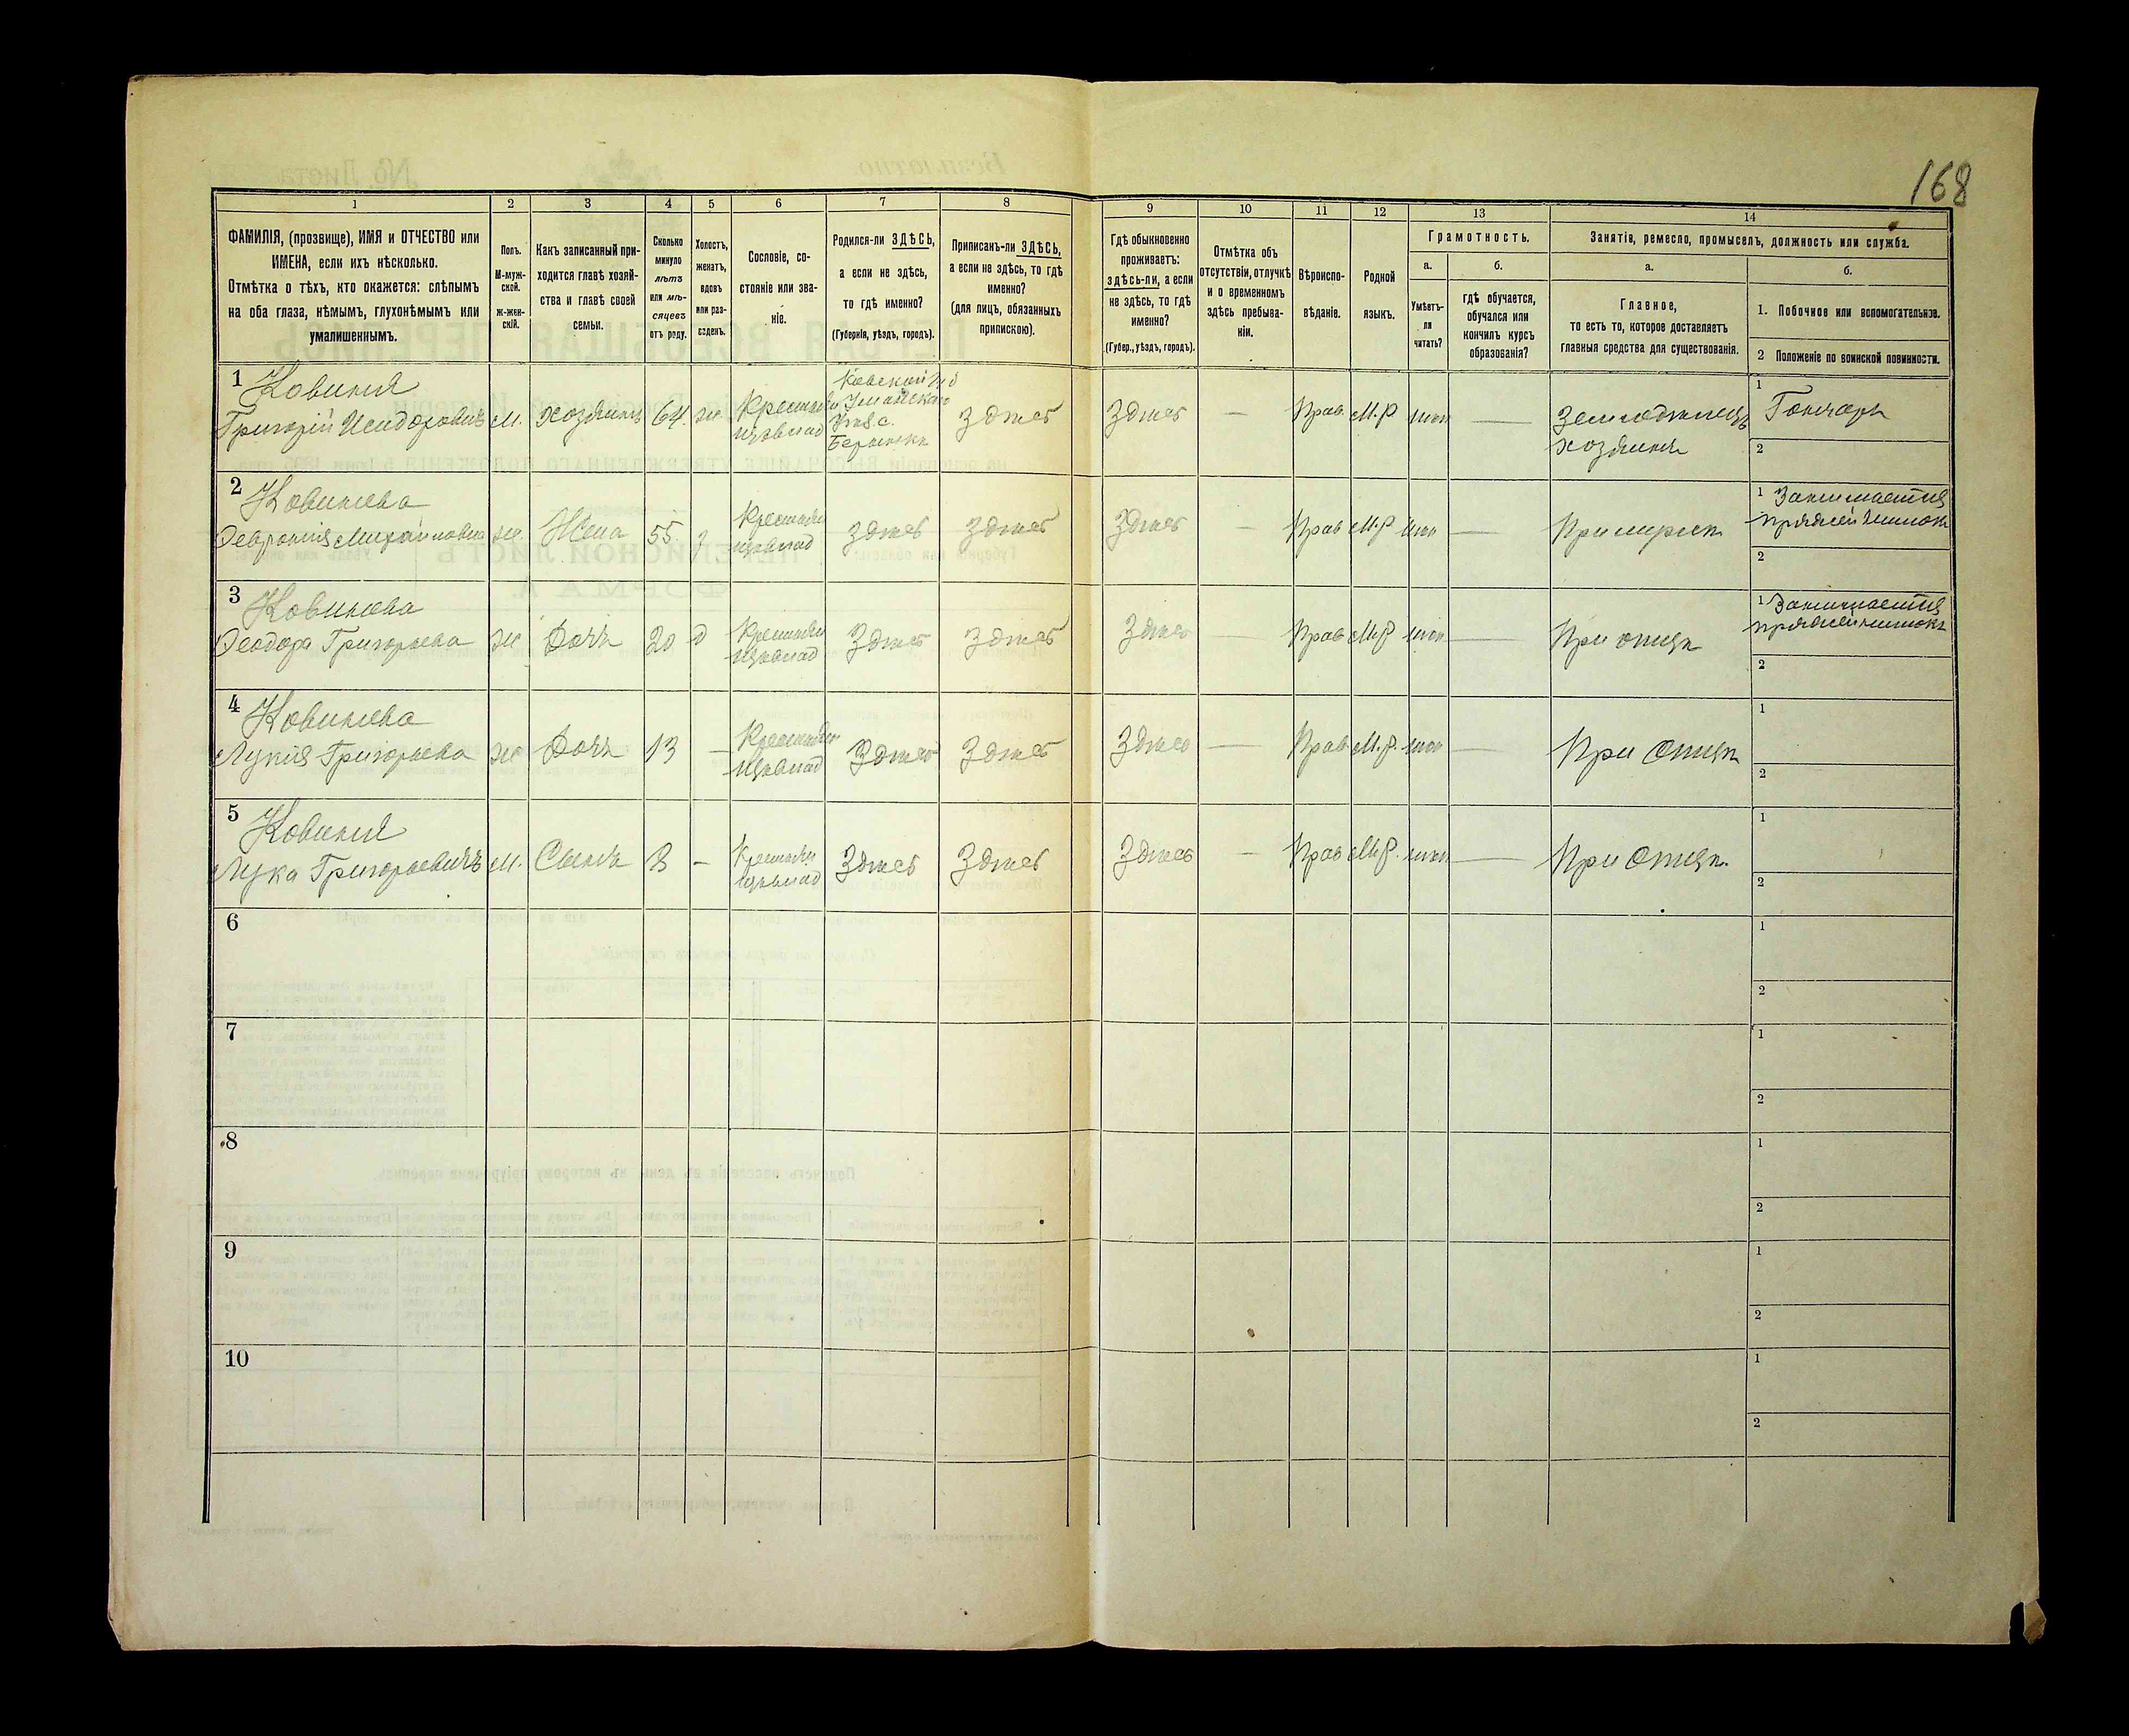 168
1
2
3
4
5
6
7
8
9
10
11
12
13
14
ФАМИЛІЯ, (прозвище), ИМЯ и ОТЧЕСТВО или
ИМЕНА, если ихъ нѣсколько.
Отмѣтка о тѣхъ, кто окажется: слѣпымъ
на оба глаза, нѣмымъ, глухонѣмымъ или
умалишеннымъ.
Полъ.
М-муж-
ской.
Ж-жен-
скій.
Какъ записанный при-
ходится главѣ хозяй-
ства и главѣ своей
семьи.
Сколько
минуло
лѣтъ
или мѣ-
сяцевъ
отъ роду.
Холостъ,
женатъ,
вдовъ
или раз-
веденъ.
Сословіе, со-
стояніе или зва-
ніе.
Родился-ли ЗДѢСЬ,
а если не здѣсь,
то гдѣ именно?
(Губернія, уѣздъ, городъ).
Приписанъ-ли ЗДѢСЬ,
а если не здѣсь, то гдѣ
именно?
(для лицъ, обязанныхъ
припискою).
Гдѣ обыкновенно
проживаетъ:
здѣсь-ли, а если
не здѣсь, то гдѣ
именно?
(Губер., уѣздъ, городъ).
Отмѣтка объ
отсутствіи, отлучкѣ
и о временномъ
здѣсь пребыва-
ніи.
Вѣроиспо-
вѣданіе.
Родной
языкъ.
Грамотность.
а.
Умѣетъ-
ли
читать?
б.
гдѣ обучается,
обучался или
кончилъ курсъ
образованія?
Занятіе, ремесло, промыселъ, должность или служба.
а.
Главное,
то есть то, которое доставляетъ
главныя средства для существованія.
б.
1. Побочное или вспомогательное.
2 Положеніе по воинской повинности.
1
Григорій Исидоровичъ
М.
хозяинъ
64.
ж
Крестьян
изъ влад
Здѣсь
Здѣсь
—
Прав
М.Р
нѣт
—
Земледѣлецъ
хозяинъ
1
Гончарь
2
2
Ковинева
Михайловна
ж.
Жена
55.
з
Крестьян
изъ влад
Здѣсь
Здѣсь
Здѣсь
—
Прав
М.Р
нѣт
—
При мужѣ
1 Занимается
пряжей нитокъ
2
3
Ковинева
Феодора Григорьева
ж
Дочь
20
д
Крестьян
изъ влад
Здѣсь
Здѣсь
Здѣсь
—
Прав
М.Р
нѣт
—
При отцѣ
1 Занимается
пряжей нитокъ
2
4
Ковинева
Лукія Григорьева
ж
Дочь
13
—
Крестьян
изъ влад
Здѣсь
Здѣсь
Здѣсь
—
Прав
М.Р.
нѣт
—
При отцѣ
1
2
5
Лука Григорьевичъ
М.
Сынъ
8
—
Крестьян
изъ влад
Здѣсь
Здѣсь
Здѣсь
—
Прав
М.Р.
нѣт
—
При отцѣ.
1
2
6
1
2
7
1
2
8
1
2
9
1
2
10
1
2